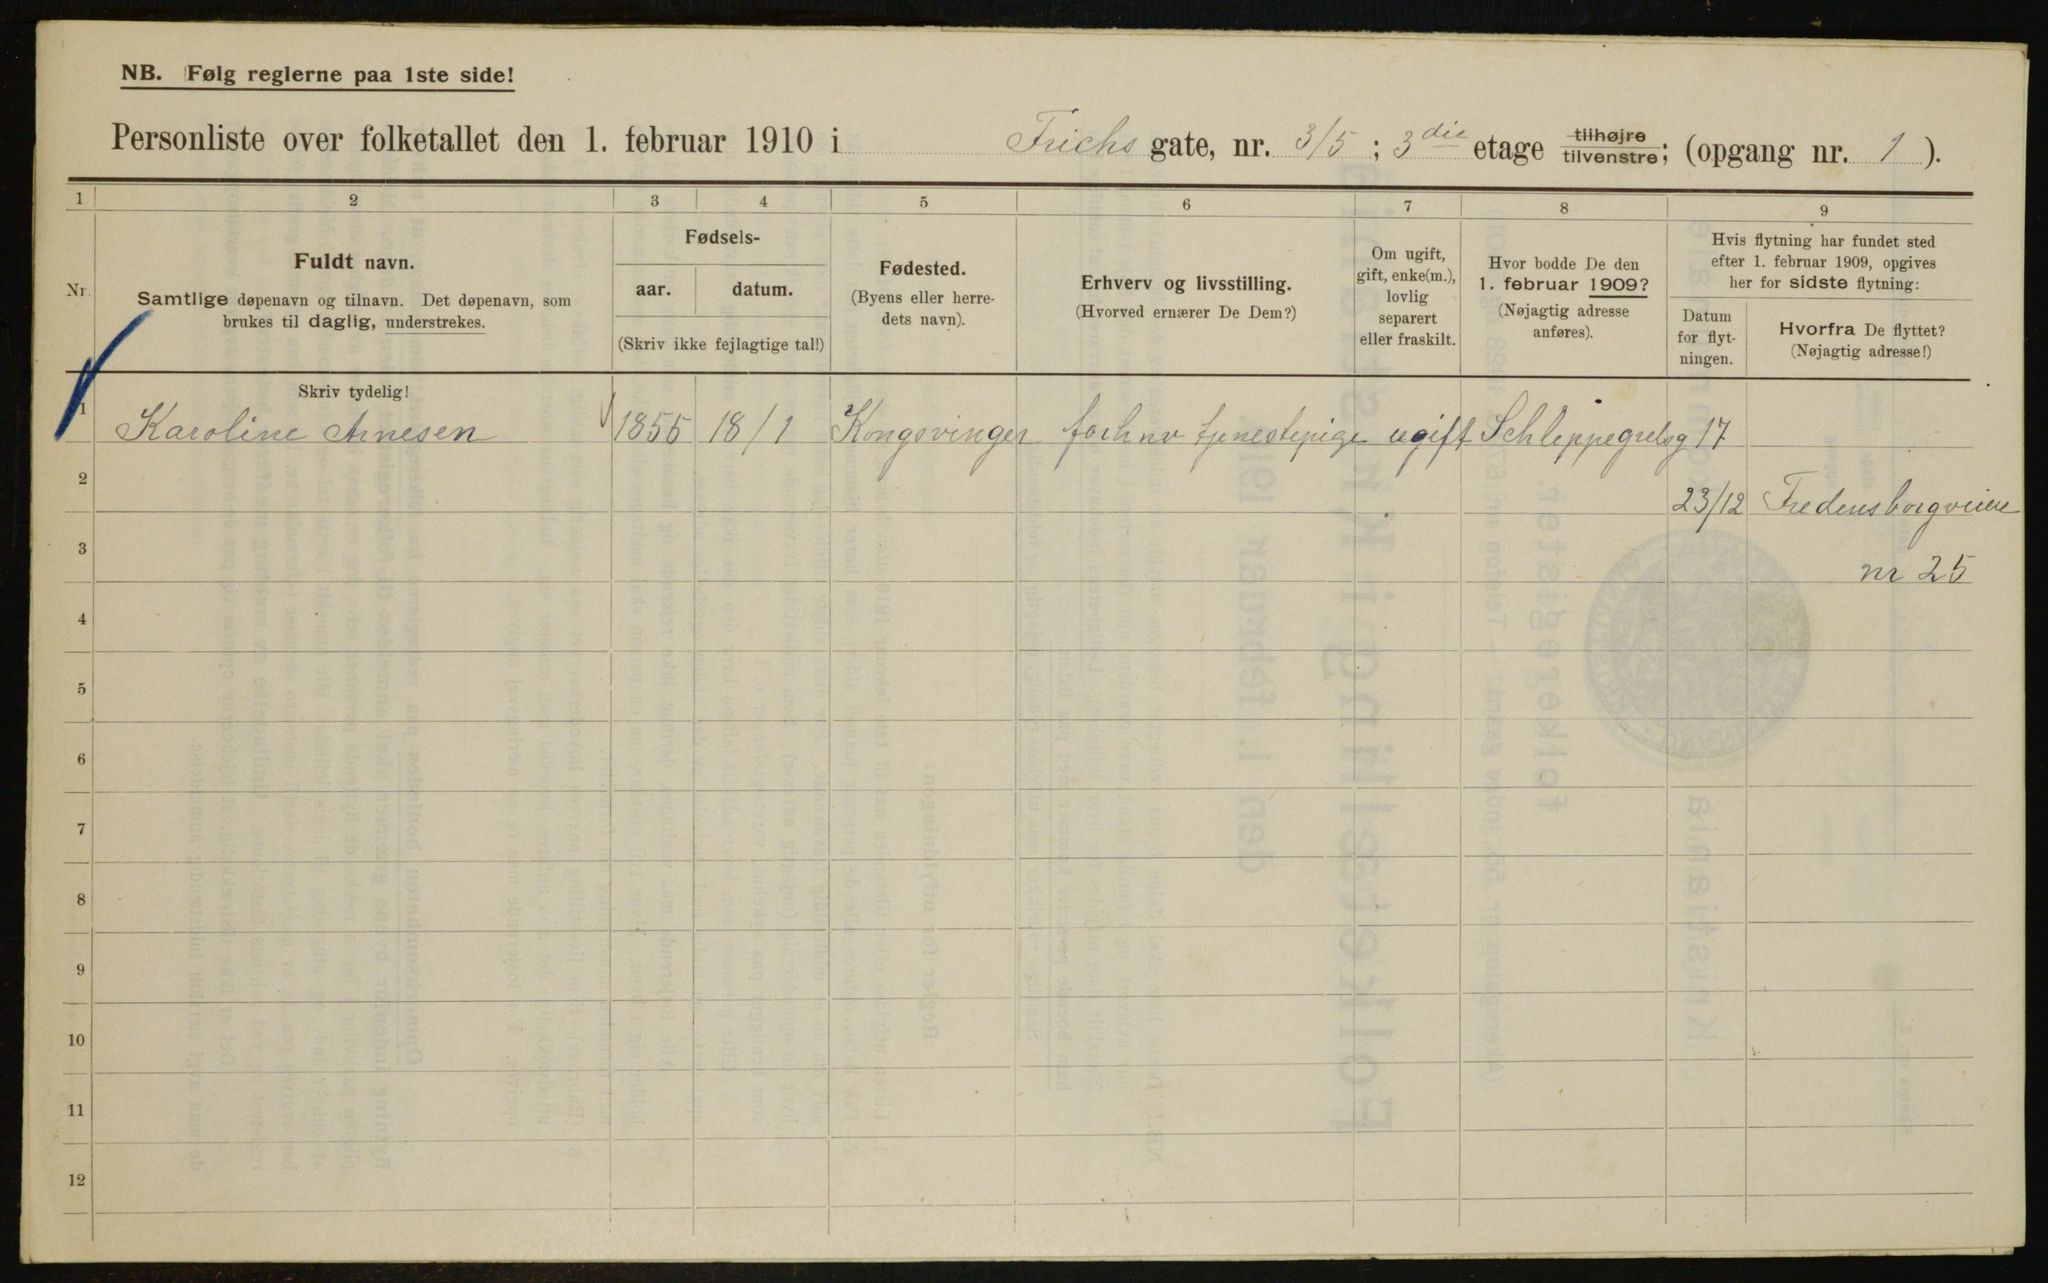 NB. Følg reglerne paa 1ste side!
Personliste over folketallet den 1. februar 1910 i Frichs gate, nr. 3/5 ; 3die etage tilhøjre/tilvenstre; (opgang nr. 1 ).
1 2 3 4 5 6 7 8 9
Nr.
Fuldt navn.
Samtlige døpenavn og tilnavn. Det døpenavn, som
brukes til daglig, understrekes.
Skriv tydelig!
Fødsels-
aar. datum.
(Skriv ikke fejlagtige tal!)
Fødested.
(Byens eller herre-
dets navn).
Erhverv og livsstilling.
(Hvorved ernærer De Dem?)
Om ugift,
gift, enke(m.),
lovlig
separert
eller fraskilt.
Hvor bodde De den
1. februar 1909?
(Nøjagtig adresse
anføres).
Hvis flytning har fundet sted
efter 1. februar 1909, opgives
her for sidste flytning:
Datum
for flyt-
ningen.
Hvorfra De flyttet?
(Nøjagtig adresse!)
1 Karoline Arnesen 1855 18/1 Kongsvinger forhnv tjenestepige ugift Schleppegrelsg 17
2 23/12 Fredensborgveien
3 nr 25
4
5
6
7
8
9
10
11
12